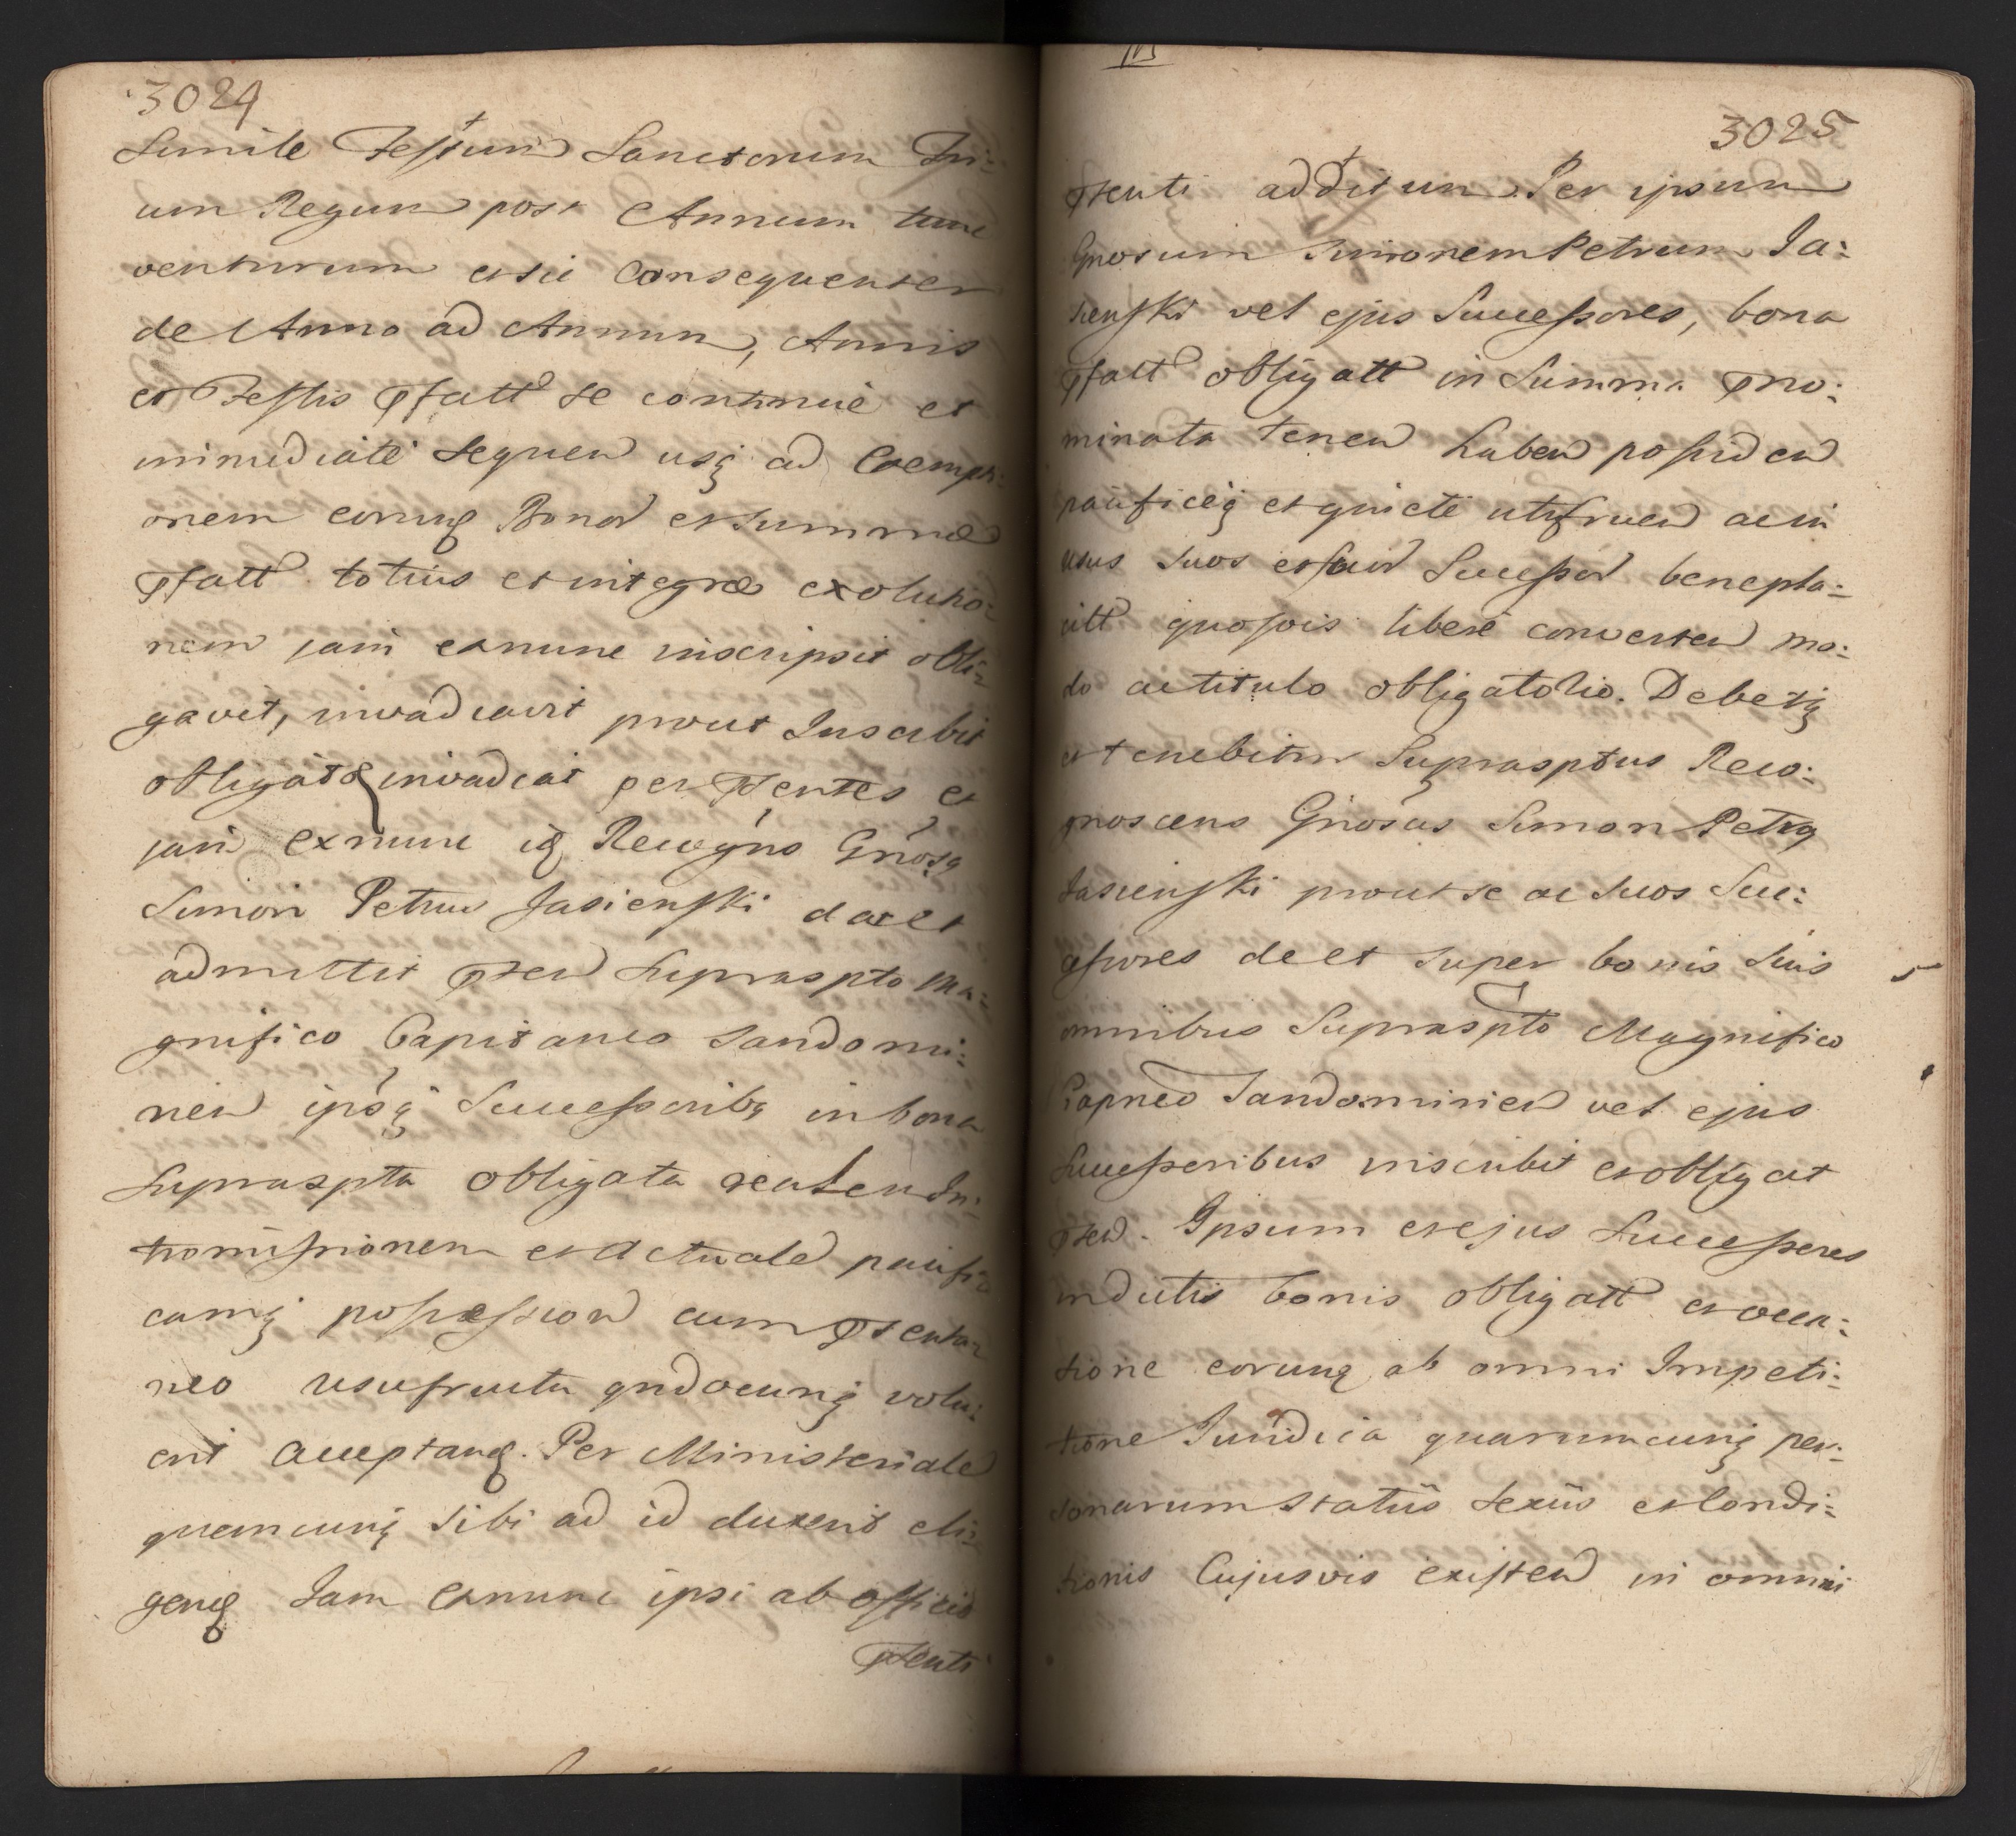 3024
Simile Festum Sanctorum Tri-
um Regum post Annum tunc
venturum et sic consequenter
de Anno ad Annum, Annis
et Festis Pfatt se continue et
immediate sequen usq ad Exempti-
onem eorumq Bonor et summæ
Pfatt totius et integræ exolutio-
nem jam exnunc inscripsit obli-
gavit, invadiavit prout Inscribit
obligat & invadiat per Pntes et
jam exnunc id Recogns Gnosq
Simon Petrus Jasienski dat et
admittit Pten Supraspto Ma-
gnifico Capitaneo Sandomi-
rien ipsq Successoribq in bona
Supraspta obligata realem In-
tromissionem et Actuale pacifi-
camq possession cum Ptenta-
neo usufructu qndocunq volu-
erit acceptanq. Per Ministeriale
quemcunq sibi ad id duxerit eli-
genq Jam exnunc ipsi ab officio
Ptenti
3025
Ptenti additum. Per ipsum
Gnosum Simonem Petrum Ja-
sienski vel ejus Successores, bona
Pfatt obligatt in Summa Pno-
minata tenen haben possiden
pacificeq et quiete utifruen ac in
usus suos et suor Successor benepla-
citt quosvis libere converten mo-
do ac titulo obligatorio. Debetq
et tenebitur Suprasptus Reco-
gnoscens Gnosus Simon Petrq
Jasienski prout se ac suos Suc-
cessores de et super bonis suis
omnibus Supraspto Magnifico
Capneo Sandomirien vel ejus
Successoribus inscribit et obligat
Pten. Ipsum et ejus Successores
in dictis bonis obligatt et occa-
tione eorunq ab omni Impeti-
tione Juridica quarumcunq per-
sonarum status sexus et Condi-
tionis Cujusvis existen in omni